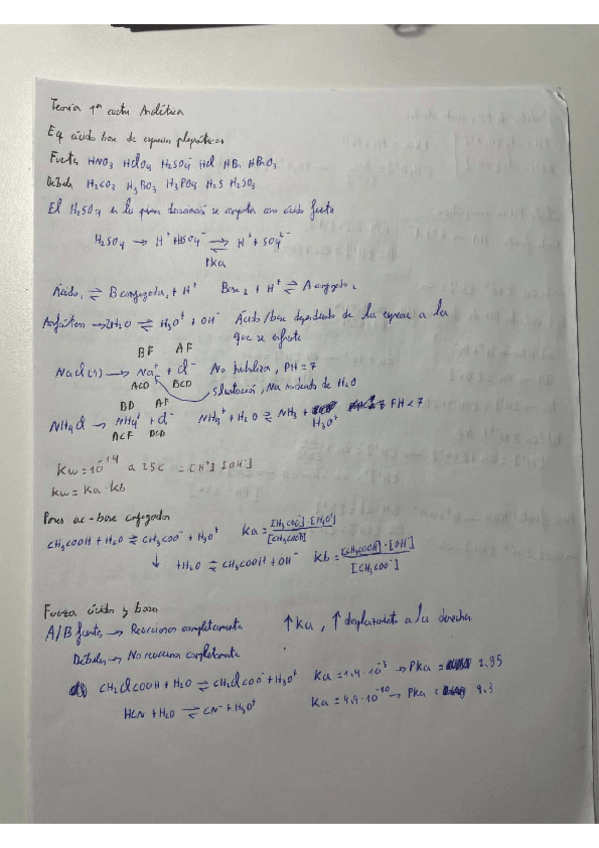 Teoría 1ª cuatri Analítica
Eq ácido base de especies polipróticas
Fuertes HNO3 HClO4 H2SO4 HCl HBr HBrO3
Débiles H2CO3 H3BO3 H3PO4 H2S H2SO3
El H2SO4 en la primera disociación se comporta como ácido fuerte
H2SO4 → H+ + HSO4- ⇌ H+ + SO4 2-
PKa
Ácido1 ⇌ B conjugada1 + H+ Base2 + H+ ⇌ A conjugado2
Anfóteros → 2H2O ⇌ H3O+ + OH- Ácido/base dependiendo de la especie a la
que se enfrente
BF AF
NaCl(s) → Na+ + Cl- No hidroliza, PH = 7
ACD BCD
Solvatación, Na rodeado de H2O
BD AF
NH4Cl → NH4+ + Cl- NH4+ + H2O ⇌ NH3 + H3O+ PH < 7
ACF BCD
Kw = 10^-14 a 25C = [H+] [OH-]
Kw = Ka · Kb
Pares ac-base conjugados
CH3COOH + H2O ⇌ CH3COO- + H3O+ Ka = [CH3COO-] · [H3O+] / [CH3COOH]
↓ + H2O ⇌ CH3COOH + OH- Kb = [CH3COOH] · [OH-] / [CH3COO-]
Fuerza ácidos y bases
A/B fuertes → Reaccionan completamente ↑ Ka, ↑ desplazamiento a la derecha
Débiles → No reaccionan completamente
CH2ClCOOH + H2O ⇌ CH2ClCOO- + H3O+ Ka = 1,4 · 10^-3 → PKa = 2.85
HCN + H2O ⇌ CN- + H3O+ Ka = 4,9 · 10^-10 → PKa = 9.3